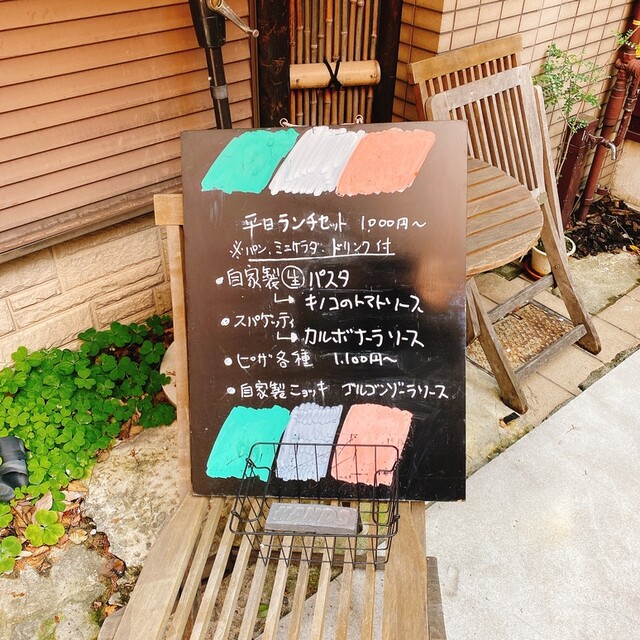 平日ランチセット 1,000円～
※パン、ミニサラダ、ドリンク付
・自家製生パスタ
↳ キノコのトマトソース
・スパゲッティ
↳ カルボナーラソース
・ピザ各種 1,100円～
・自家製ニョッキ ゴルゴンゾーラソース